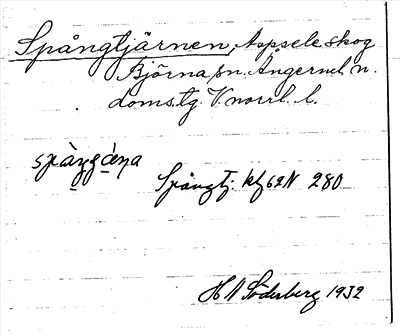 Spångtjärnen, Aspsele skog
Björna sn. Ångerml. n.
doms.tg. V. norrl. l.
Spångtj. kbl 62N 280
H N Söderberg 1932